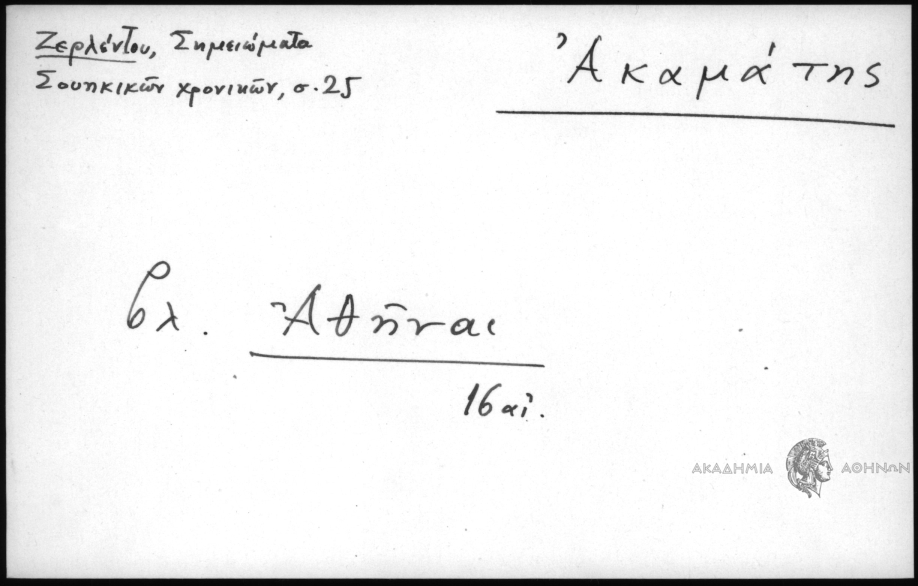 Ζερλέντου, Σημειώματα
Σουηκικῶν χρονικῶν, σ. 25
Ἀκαμάτης
βλ. Ἀθῆναι
16 αἰ.
ΑΚΑΔΗΜΙΑ ΑΘΗΝΩΝ